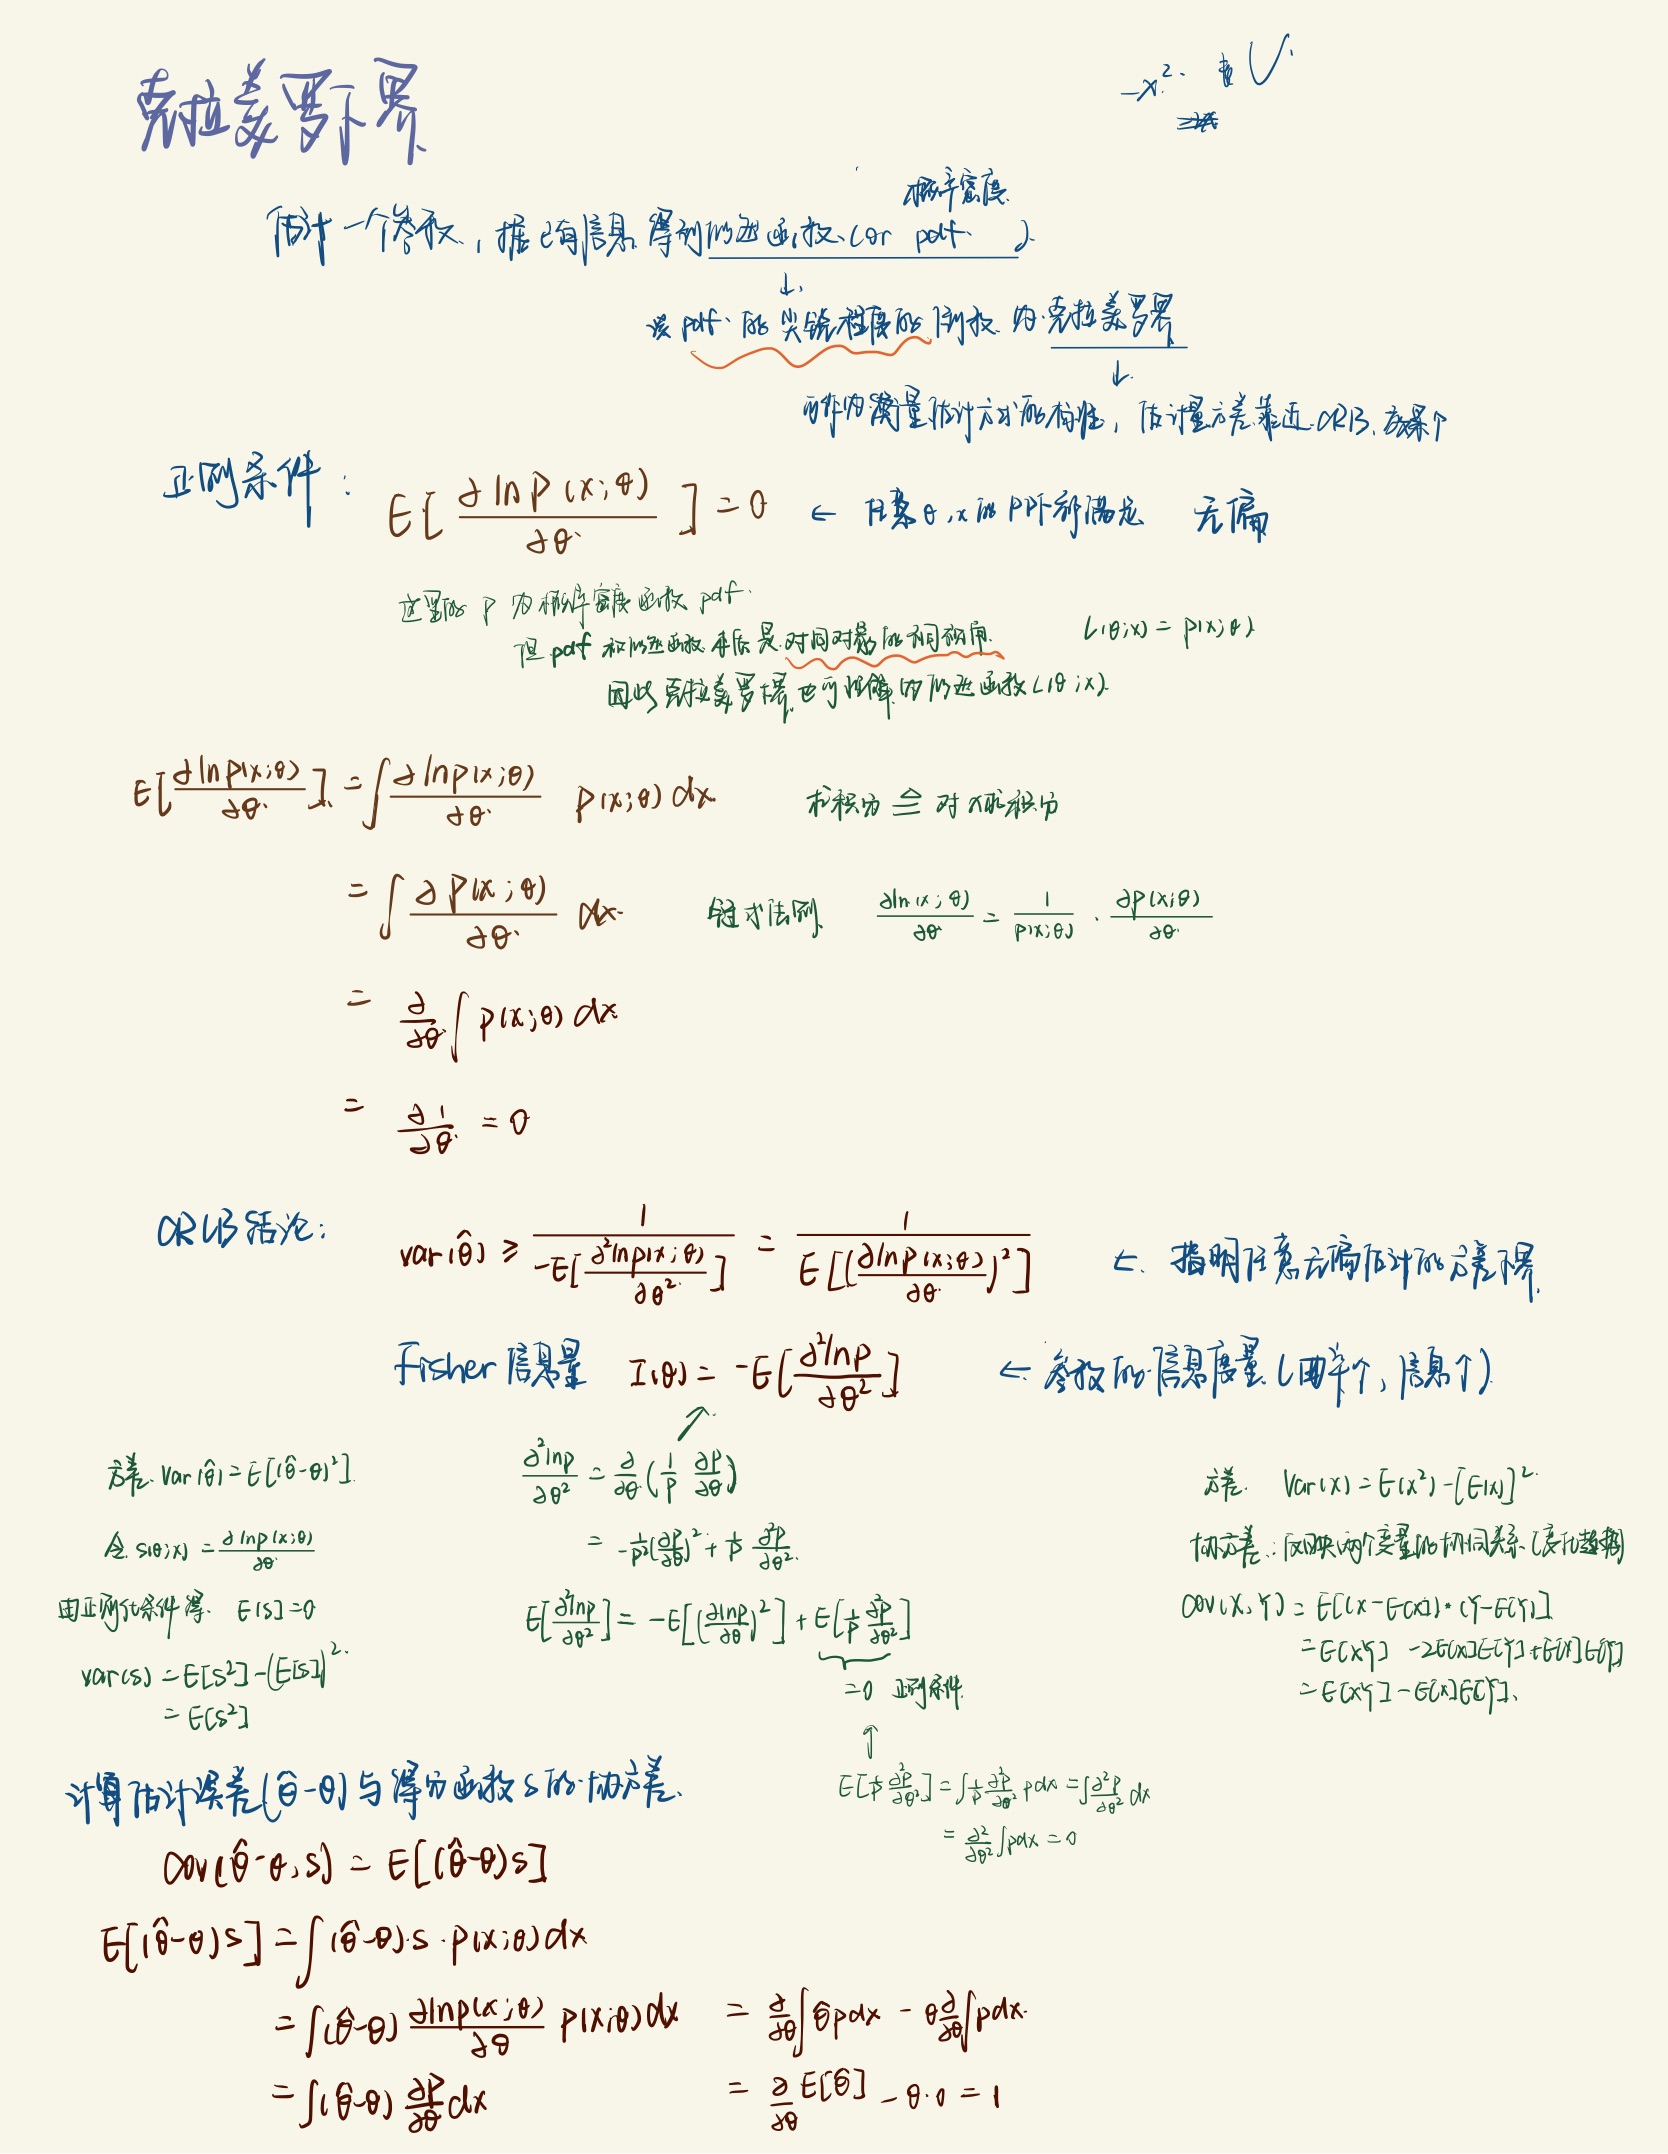 克拉美罗下界
-x². 
概率密度
估计一个参数, 据已有信息得到似然函数 (or pdf )
↓
该pdf的尖锐程度的倒数为克拉美罗界
↓
可作为衡量估计方式的标准, 估计量方差靠近CRB, 效果↑
正则条件: E[∂lnp(x;θ)/∂θ] = 0 ← 任意θ, x的PDF都满足 无偏
这里的 P 为概率密度函数 pdf.
但 pdf 和似然函数本质是对同对象的不同利用. L(θ;x) = p(x;θ)
因此克拉美罗界也可理解为似然函数L(θ;x)
E[∂lnp(x;θ)/∂θ] = ∫ ∂lnp(x;θ)/∂θ p(x;θ) dx 求积分 ≙ 对x求积分
= ∫ ∂p(x;θ)/∂θ dx 链式法则 ∂ln(x;θ)/∂θ = 1/p(x;θ) · ∂p(x;θ)/∂θ
= ∂/∂θ ∫ p(x;θ) dx
= ∂1/∂θ = 0
CRLB结论: var(θ̂) ≥ 1/(-E[∂²lnp(x;θ)/∂θ²]) = 1/E[(∂lnp(x;θ)/∂θ)²] ← 指明任意无偏估计的方差下界
Fisher 信息量 I(θ) = -E[∂²lnp/∂θ²] ← 参数的信息度量 (曲率↑, 信息↑)
方差 var(θ̂) = E[(θ̂-θ)²]
令 s(θ;x) = ∂lnp(x;θ)/∂θ
由正则化条件得 E[s] = 0
var(s) = E[s²] - (E[s])²
= E[s²]
∂²lnp/∂θ² = ∂/∂θ (1/p ∂p/∂θ)
= -1/p² (∂p/∂θ)² + 1/p ∂²p/∂θ²
E[∂²lnp/∂θ²] = -E[(∂lnp/∂θ)²] + E[1/p ∂²p/∂θ²]
=0 正则条件
↑
E[1/p ∂²p/∂θ²] = ∫ 1/p ∂²p/∂θ² p dx = ∫ ∂²p/∂θ² dx
= ∂²/∂θ² ∫pdx = 0
方差. Var(x) = E(x²) - [E(x)]²
协方差: 反映两个变量的协同关系 (变化趋势)
Cov(X,Y) = E[(X-E[X])*(Y-E[Y])]
= E[XY] - 2E[X]E[Y] + E[X]E[Y]
= E[XY] - E[X]E[Y].
计算估计误差(θ̂-θ)与得分函数s的协方差.
Cov(θ̂-θ, s) = E[(θ̂-θ)s]
E[(θ̂-θ)s] = ∫(θ̂-θ)·s·p(x;θ)dx
= ∫(θ̂-θ) ∂lnp(x;θ)/∂θ p(x;θ)dx
= ∫(θ̂-θ) ∂p/∂θ dx
= ∂/∂θ ∫θ̂pdx - θ ∂/∂θ ∫pdx
= ∂/∂θ E[θ̂] - θ·0 = 1